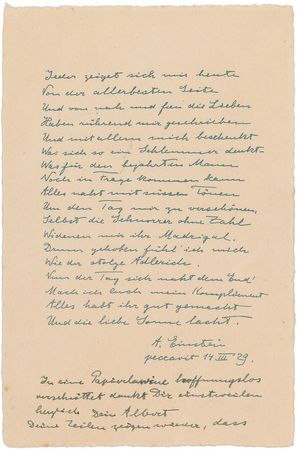 Jeder zeiget sich mir heute
Von der allerbesten Seite
Und von nah und fern die Lieben
Haben rührend mir geschrieben
Und mit allem mich beschenkt
Was sich so ein Schlemmer denkt
Was für den bejahrten Mann
Noch in Frage kommen kann
Alles naht mit süssen Tönen
Um den Tag mir zu verschönen,
Selbst die Schnorrer ohne Zahl
Widmen mir ihr Madrigal.
Drum gehoben fühl' ich mich
Wie der stolze Adlerich
Nun der Tag sich naht dem End'
Mach ich Euch mein Kompliment
Alles habt ihr gut gemacht
Und die liebe Sonne lacht.
A. Einstein
peccavit 14 III 29.
In eine Papierlawine hoffnungslos
verschüttet dankt Dir einstweilen
herzlich Dein Albert
Deine Zeilen zeigen wieder, dass